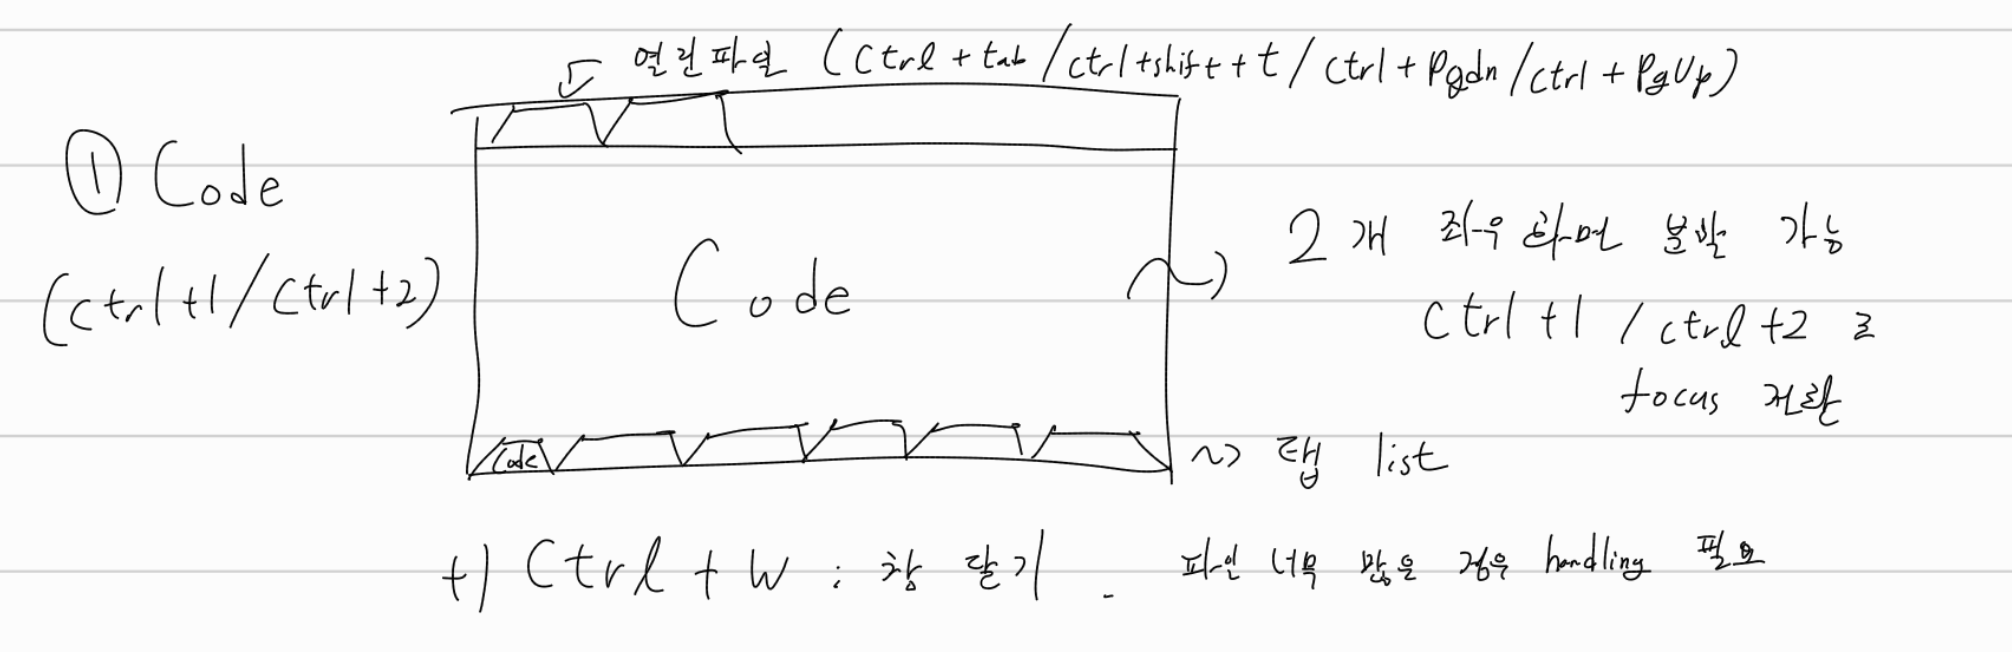 열린파일 (Ctrl + tab / ctrl+shift+t / ctrl + Pgdn / ctrl + PgUp)
① Code
(ctrl+1 / Ctrl+2)
Code
2개 좌우 화면 분할 가능
ctrl+1 / ctrl+2 로
focus 전환
Code
~> 탭 list
+) Ctrl + W : 창 닫기. 파일 너무 많을 경우 handling 필요